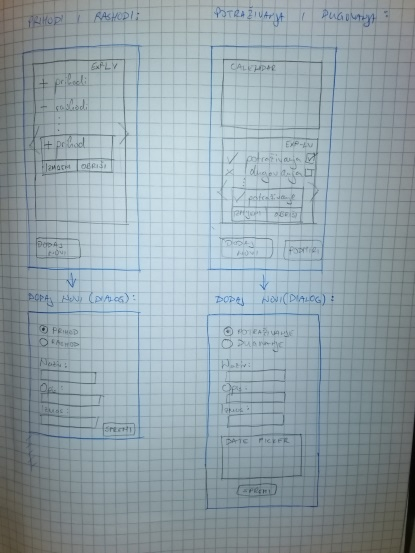 PRIHODI / RASHODI:
EXP-LV
+ prihodi
- rashodi
+ prihod
IZMJENI OBRIŠI
DODAJ
NOVI
DODAJ NOVI (DIALOG):
PRIHOD
RASHOD
Naziv:
Opis:
Iznos:
SPREMI
POTRAŽIVANJA / DUGOVANJA:
CALENDAR
EXP-LV
✓ potraživanja
✗ dugovanja
✓ potraživanje
OBRIŠI
DODAJ
NOVI
DODAJ NOVI (DIALOG):
POTRAŽIVANJE
DUGOVANJE
Naziv:
Opis:
Iznos:
DATE PICKER
SPREMI